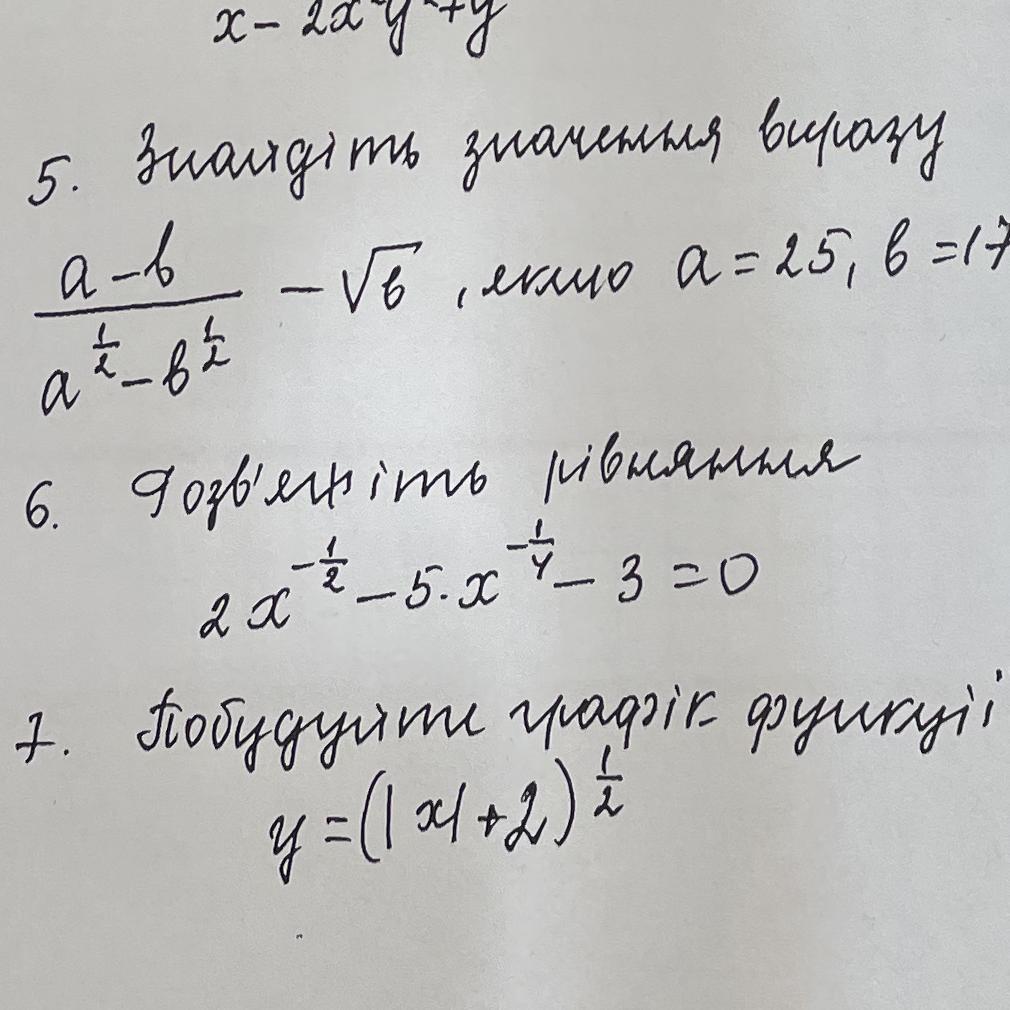 x - 2x y + y
5. Знайдіть значення виразу
\frac{a-b}{a^{\frac{1}{2}}-b^{\frac{1}{2}}} - \sqrt{b}, якщо a = 25, b = 17
6. Розв'яжіть рівняння
2x^{-\frac{1}{2}} - 5 \cdot x^{-\frac{1}{4}} - 3 = 0
7. Побудуйте графік функції
y = (|x| + 2)^{\frac{1}{2}}